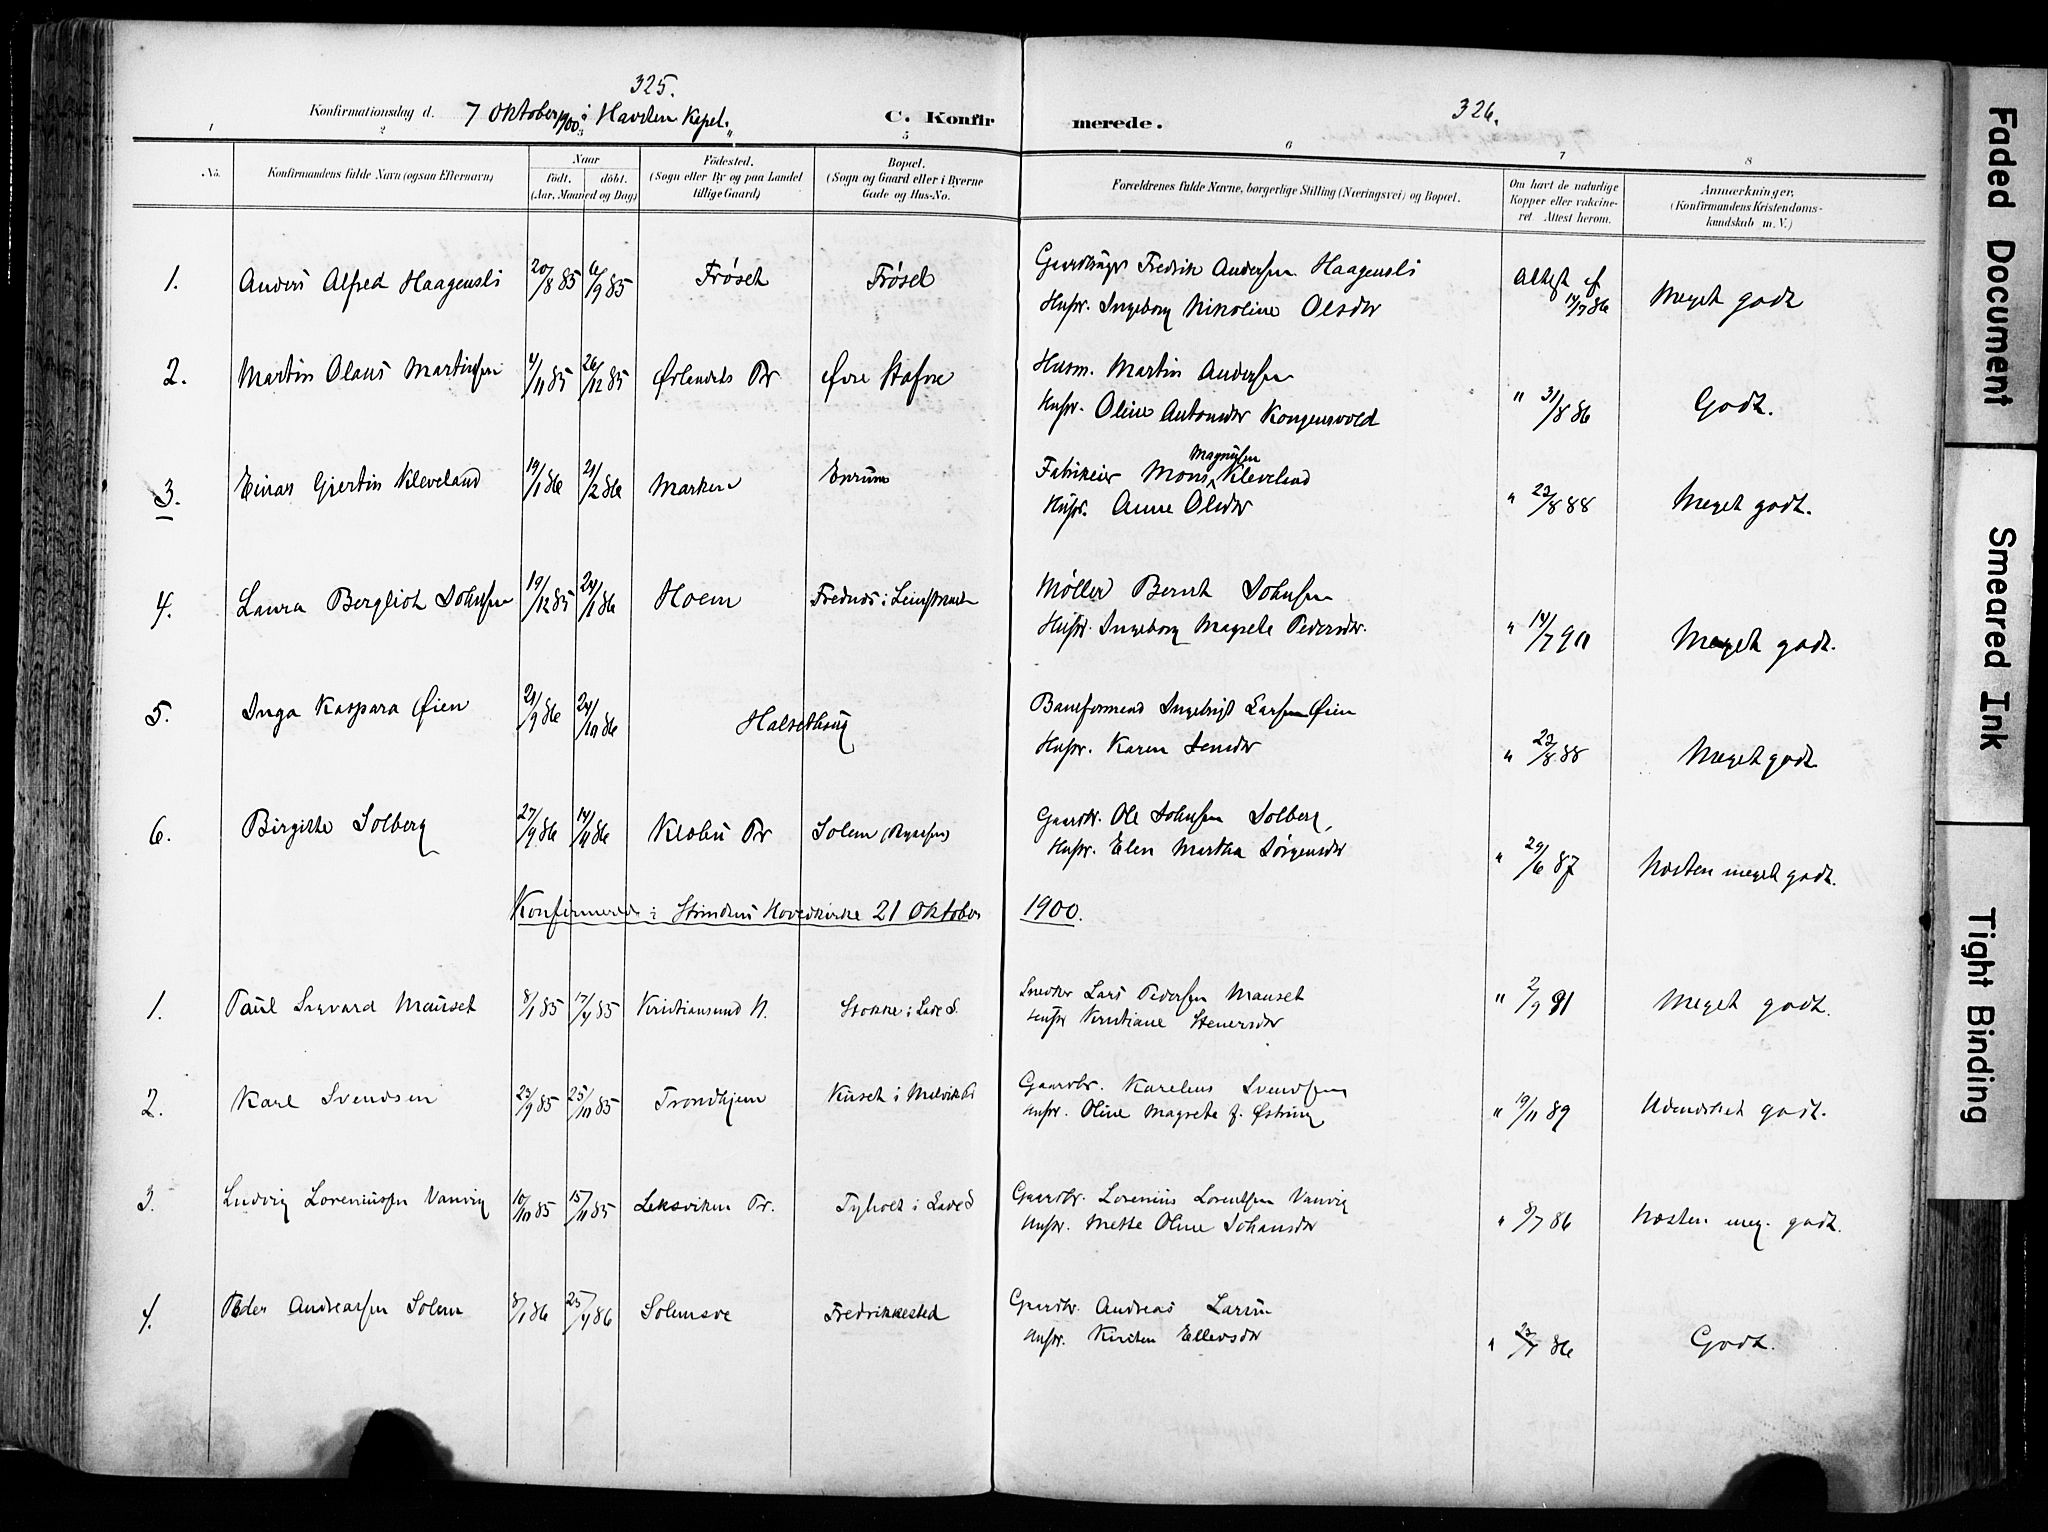 325.
326.
Konfirmationsdag d. 7 Oktober 1900 i Havsten Kapel.
C. Konfirmerede.
1 2 3 5 6 7 8
No.
Konfirmandens fulde Navn (ogsaa Efternavn)
Naar
født. døbt.
(Aar, Maaned og Dag)
Fødested.
(Sogn eller By og paa Landet
tillige Gaard)
Bopæl.
(Sogn og Gaard eller i Byerne
Gade og Hus-No.
Forældrenes fulde Navne, borgerlige Stilling (Næringsvei) og Bopæl.
Om havt de naturlige
Kopper eller vakcine-
ret. Attest herom.
Anmærkninger.
(Konfirmandens Kristendoms-
kundskab m. V.)
1. Anders Alfred Haagensli 20/8 85 6/9 85 Frøset Frøset Gaardbruger Fredrik Andersen Haagensli
Husfr. Ingeborg Nikoline Olsdtr Attest af 17/7 86 Meget godt
2. Martin Olaus Martinsen 4/11 85 26/12 85 Ørlandets Pr Øvre Stafne Husm. Martin Andersen
Husfr. Oline Antonsdtr Kongensvold " 31/8 86 Godt.
3. Einar Gjertin Kleveland 19/1 86 21/2 86 Marken Enrum Fabrikeier Mons Magnussen Kleveland
Husfr. Anne Olsdtr " 22/8 88 Meget godt.
4. Laura Bergliot Johnsen 19/12 85 24/1 86 Hoem Frednes i Leinstrand Møller Bernt Johnsen
Husfr. Ingeborg Magrete Pedersdtr. " 14/7 90 Meget godt.
5. Inga Kaspara Øien 21/9 86 24/10 86 Halsethaug Baneformand Ingebrigt Larsen Øien
Husfr. Karen Jensdtr " 22/8 88 Meget godt
6. Birgitte Solberg 27/9 86 14/11 86 Klæbu Pr Solem Gaardbr. Ole Johnsen Solberg,
Husfr. Elen Martha Jørgensdtr " 29/6 87 Næsten meget godt.
Konfirmerede i Strindens Hovedkirke 21 Oktober 1900.
1. Paul Sigvard Mauset 8/1 85 17/4 85 Kristiansund N. Stokke i Lade S. Snedker Lars Pedersen Mauset
Husfr Kristiane Stenersdtr " 2/9 91 Meget godt.
2. Karl Svendsen 23/9 85 25/10 85 Trondhjem Kuset i Malvik S. Gaardbr. Karelius Svendsen
Husfr. Oline Magrete f. Østring " 19/11 89 Udmærket godt.
3. Ludvig Loreniussen Vanvig 10/10 85 15/11 85 Leksviken Pr. Tyholt i Lade S Gaardbr. Lorenius Lorentsen Vanvig
Husfr. Mette Oline Johansdtr " 8/7 86 Næsten meg. godt.
4. Peder Andreassen Solem 8/1 86 25/4 86 Solemsve Fredrikkested Gaardbr. Andreas Larsen
Husfr. Kirsten Ellevsdtr " 86 Godt.
Faded Document
Smeared Ink
Tight Binding